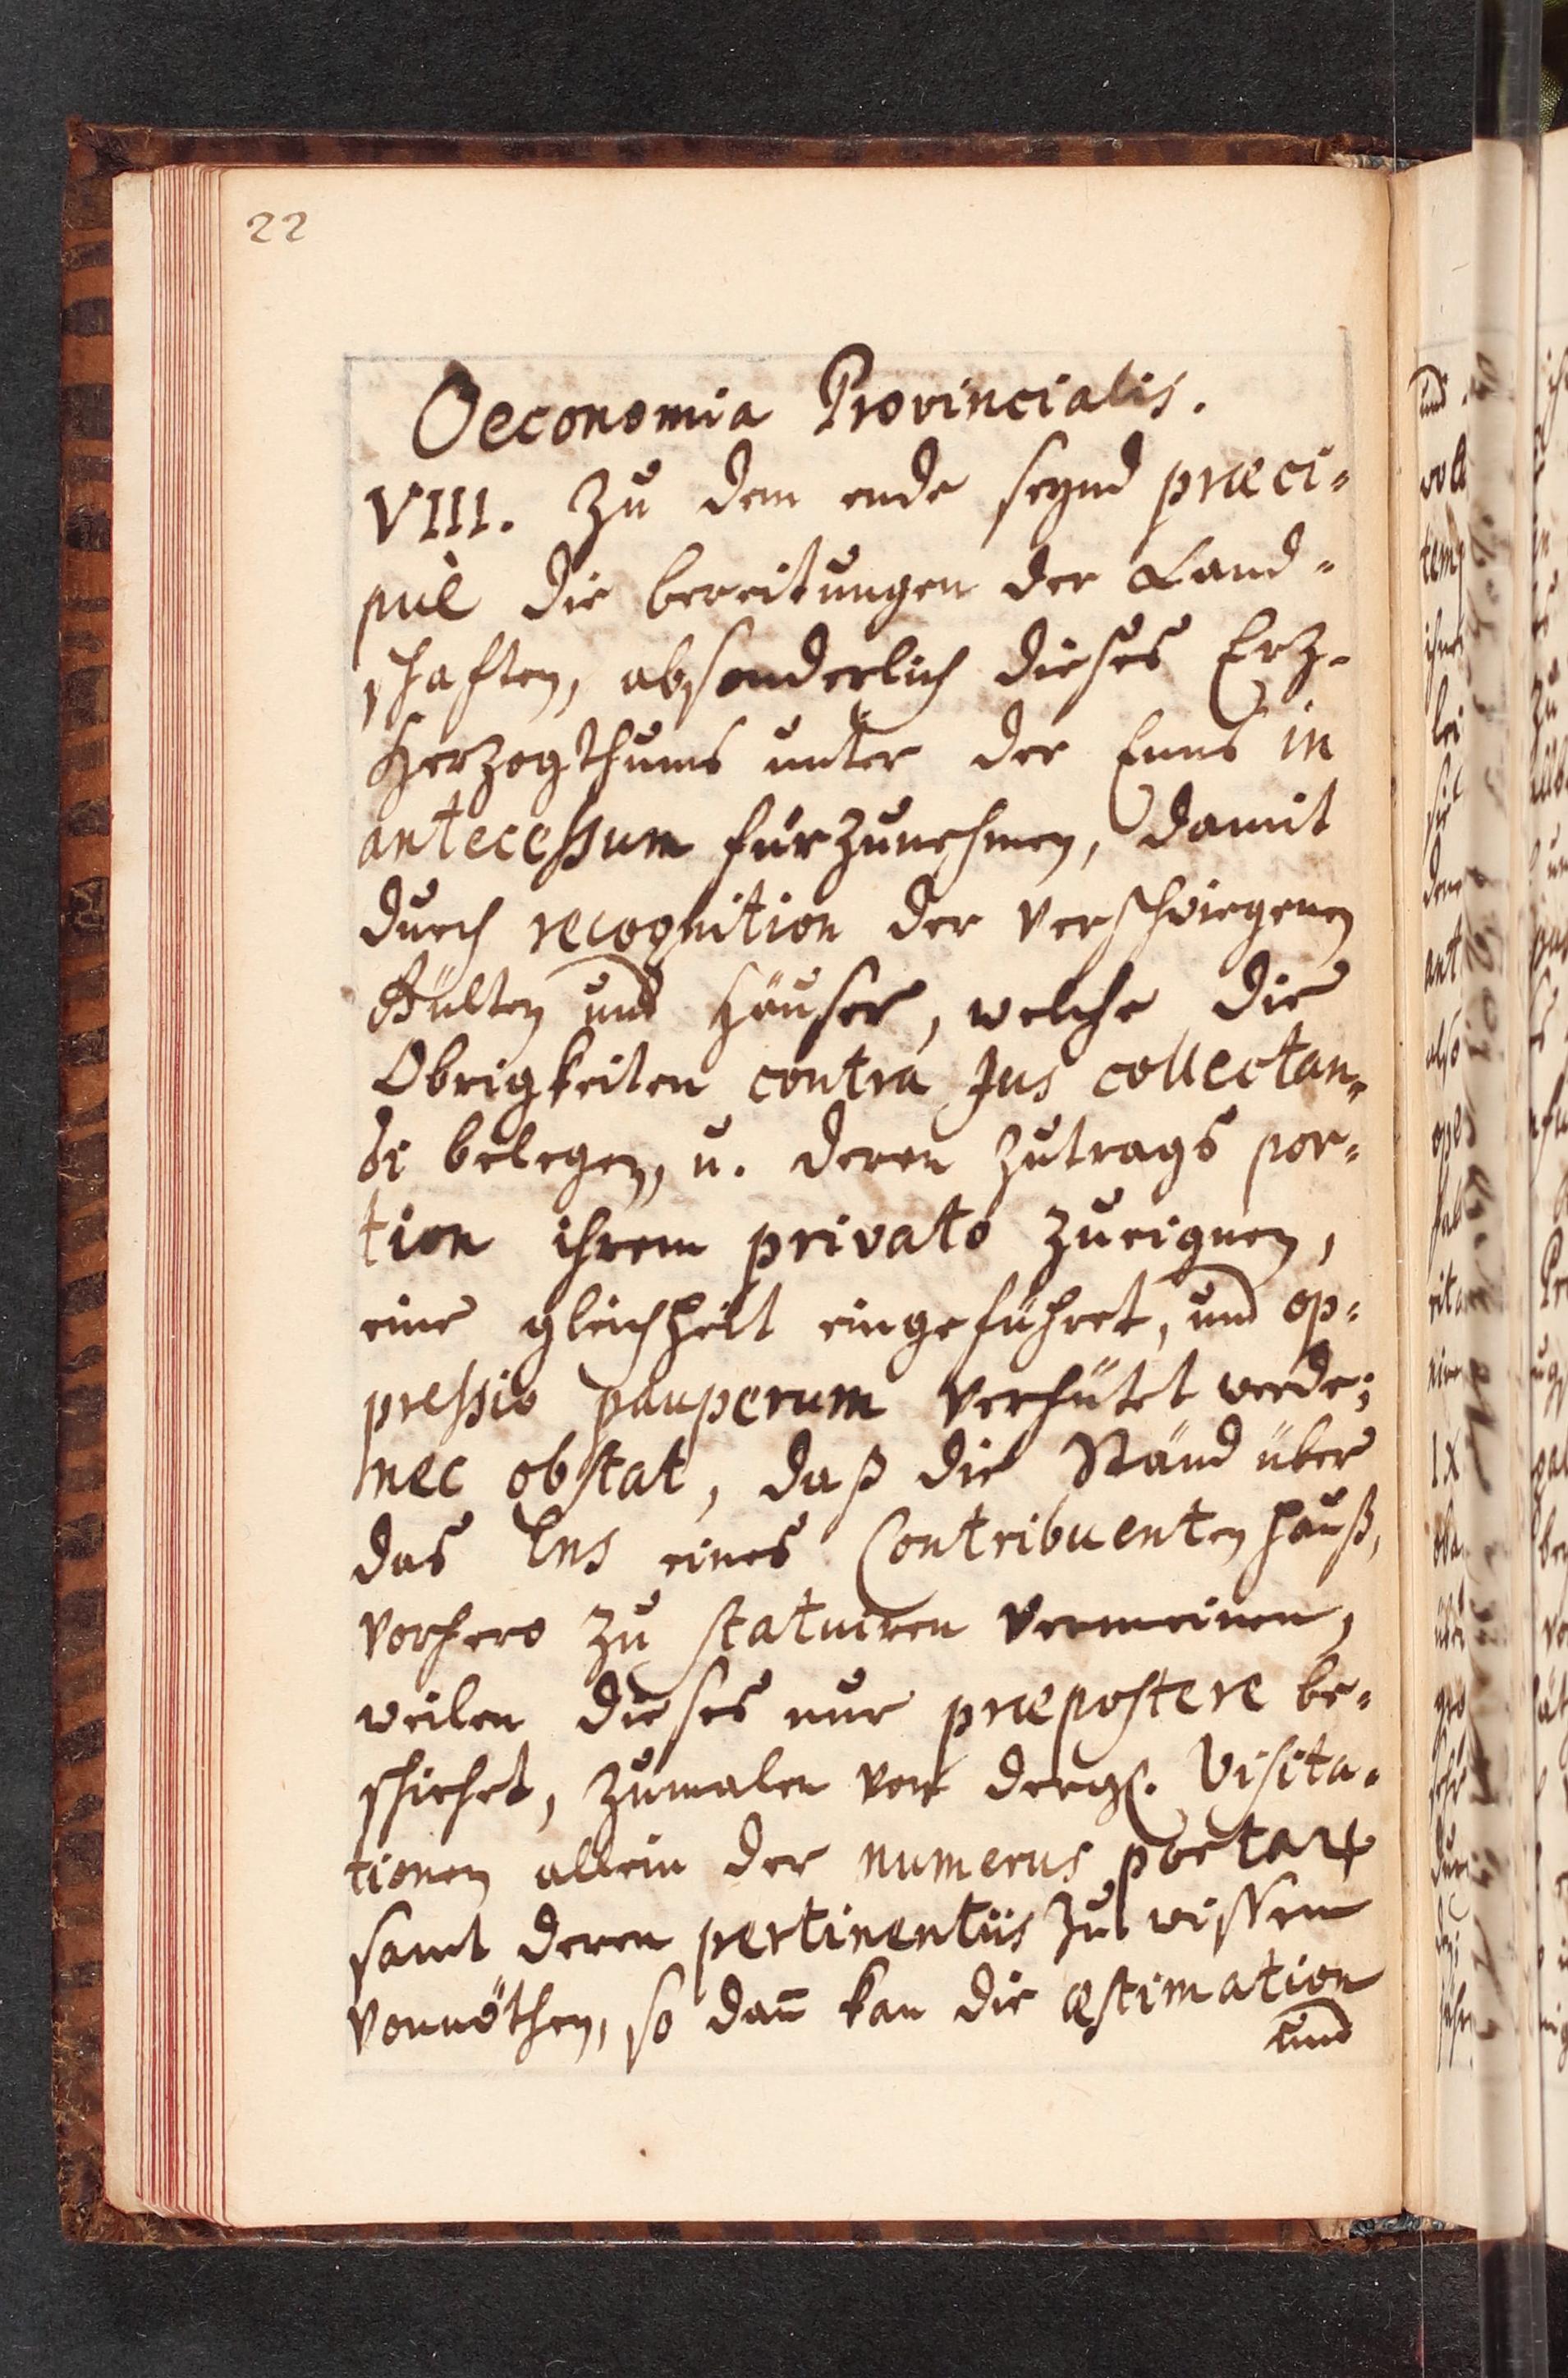 22
Oeconomia Provincialis.
VIII. Zu dem ende seynd præci-
puè die bereitungen der Land-
schaften, absonderlich dieses Erz-
Herzogthums unter der Enns in
antecessum fürzunehmen, damit
durch recognition der verschwiegenen
Gülten und Häuser, welche die
Obrigkeiten contra Jus collectan-
di belegen, u. deren Zutrags por-
tion ihrem privato zueignen,
eine gleichheit eingeführet, und op-
pressio pauperum verhütet werde;
nec obstat, daß die Ständ über
das Ens eines Contribuenten hauß,
vorhero zu statuiren vermeinen,
weilen dieses nur præpostere be-
schiehet, zumalen von dergl. Visita-
tionen allein der numerus
samt deren pertinentiis zu wissen
vonnöthen, so dan̄ kan die æstimation
und